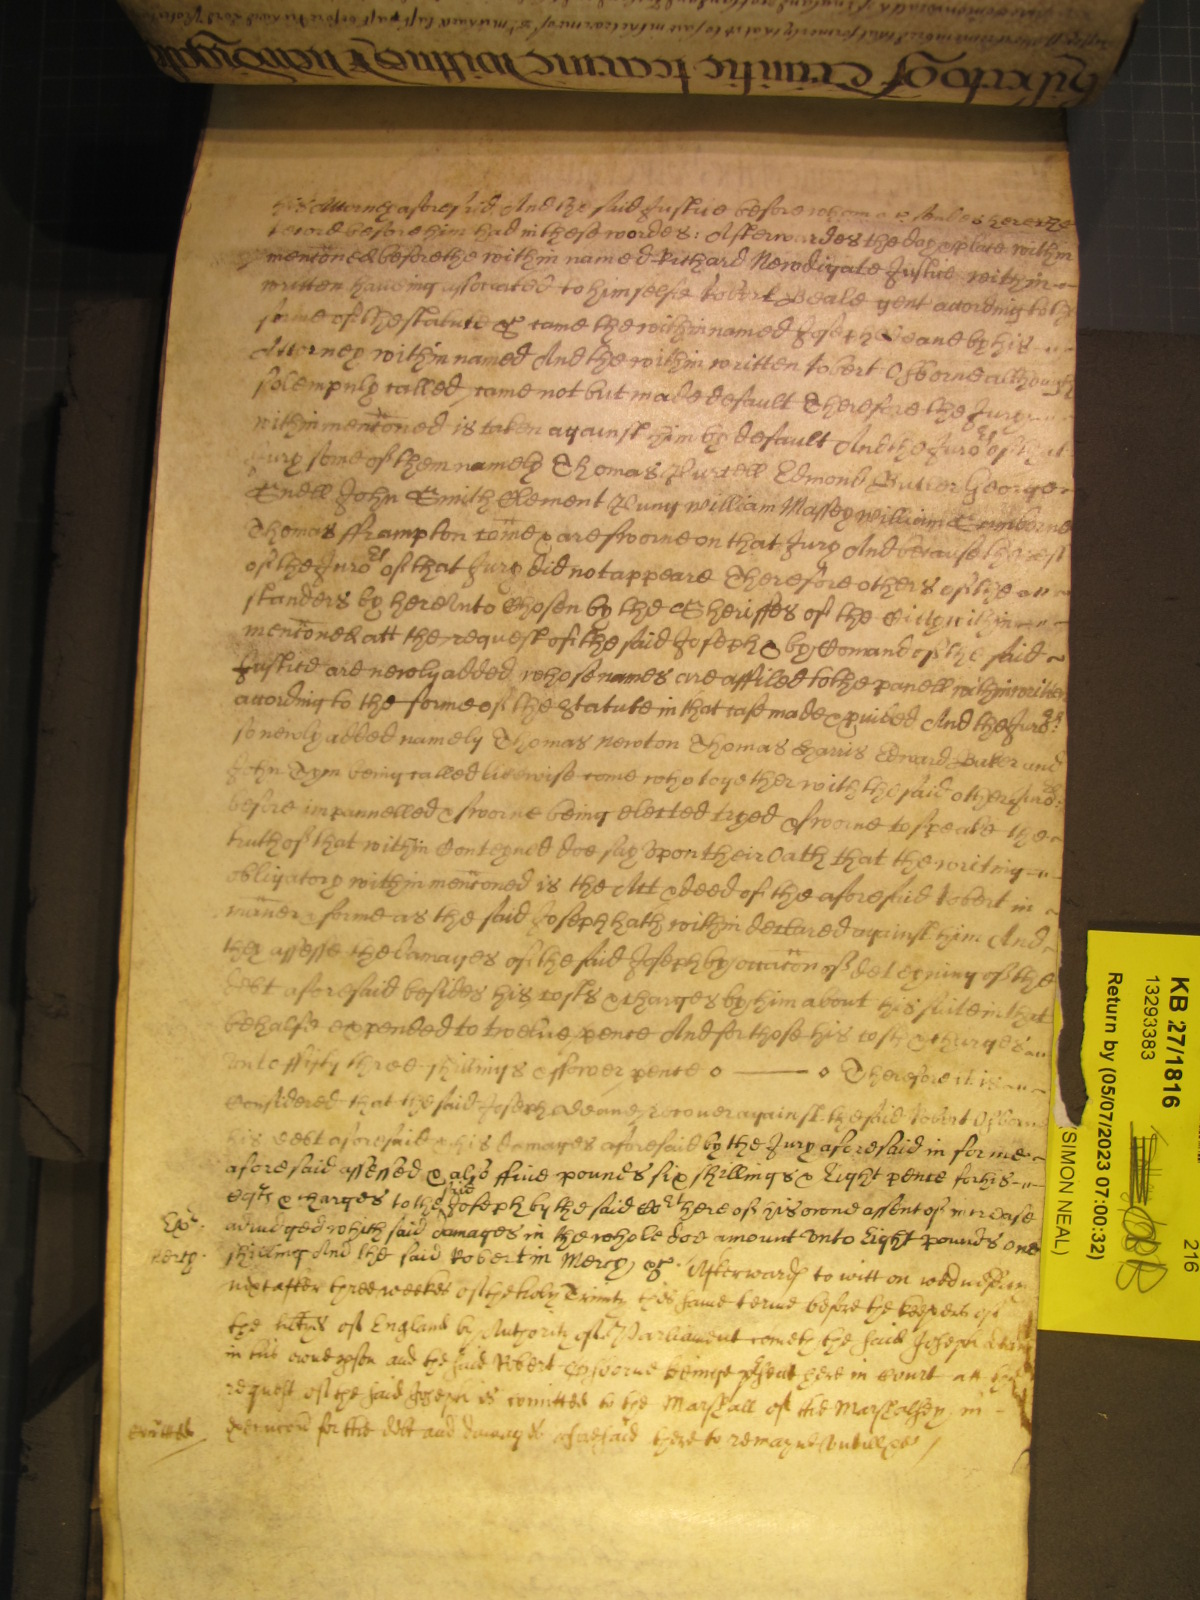 his Attorney aforesaid And the said Justice before whom sendes here the
record before him had in these wordes: Afterwardes the day & place within
menc̄oned before the within named Richard Newdigate Justice within
written haveing associated to himselfe Robert Beale gent according to the
forme of the statute &c came the within named Joseph Deane by his
Attorney within named And the within written Robert Osborne although
solempnly called came not but made default Therefore the Jury
within menc̄oned is taken against him by default And the Juror̄s of that
Jury some of them namely Thomas Purcell Edmond Butler George
Snell John Smith Clement Pung William Massey William
Thomas Frampton come & are sworne on that Jury And because the rest
of the Juror̄s of that Jury did not appeare Therefore others of the
standers by hereunto Chosen by the Sheriffes of the Citty within
menc̄oned att the request of the said Joseph & by Comand of the said
Justice are newly added whose names are affiled to the panell within written
according to the forme of the Statute in that case made & p̱vided And the Juror̄s
so newly added namely Thomas Newton Thomas Harris Edward Baker and
John Tym being called likewise come who together with the said other Juror̄s
before impannelled & sworne being elected tryed & sworne to speake the
truth of that within Conteyned doe say upon their Oath that the writing
obligatory within menc̄oned is the Act & deed of the aforesaid Robert in
manner & forme as the said Joseph hath within declared against him And
they assesse the damages of the said Joseph by occac̄on of deteyning of the
debt aforesaid besides his costs & charges by him about his suite in that
behalfe expended to twelve pence And for those his costs & charges
unto fifty three shillings & fower pence o —— o Therefore it is
Considered that the said Joseph Deane Recover against the said Robert Osborne
his debt aforesaid & his damages aforesaid by the Jury aforesaid in forme
aforesaid assessed & also ffive pounds six shillings & Eight pence for his
costs & charges to the said Joseph by the said Cort here of his owne assent of increase
Ex.
adiudged which said damages in the whole doe amount unto Eight pounds one
Mercy.
shilling And the said Robert in Mercy &c. Afterwards to witt on wednesday
next after three weekes of the holy Trinity this same terme before the keepers of
the libtys of England by Authority of Parliament cometh the said Joseph Deane
in his owne p̱son and the said Robert Osborne beinge p̱sent here in Court att the
request of the said Joseph is comitted to the Marshall of the Marshalsey in
comitted
execuc̄on for the debt and damages aforesaid there to remayne untill &c
KB 27/1816
13293383
Return by (05/07/2023 07:00:32)
SIMON NEAL)
216